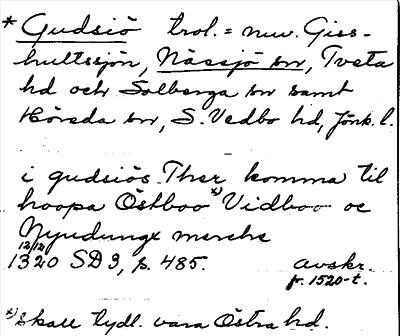 * Gudsiö trol. = nuv. Giss-
hultssjön, Nässjö sn, Tveta
hd och Solberga sn samt
Hörsda sn, S. Vedbo hd, Jönk. l.
i gudsiös. Ther komma til
hoopa Östboo x) Vidboo oc
Nyudungx merche
12/12
1320 SD 3, s. 485. avskr.
fr. 1520-t.
x) Skall tydl. vara Östra hd.